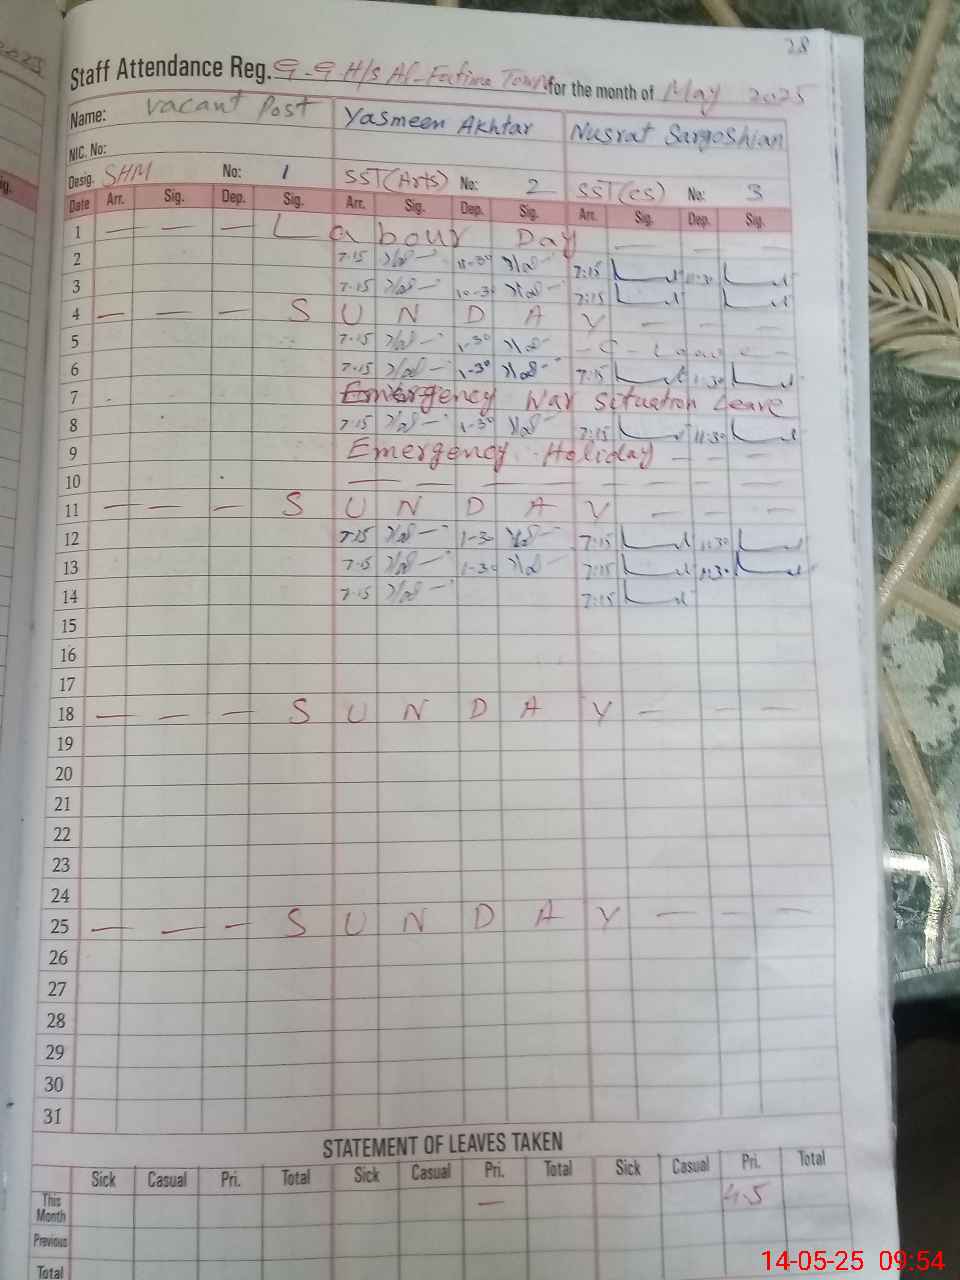 28
Staff Attendance Reg. G-G H/s Al-Fatima Town for the month of May 2025
Name: Vacant Post Yasmeen Akhtar Nusrat Sargoshian
NIC. No:
Desig. SHM No: 1 SST(Arts) No: 2 SST(CS) No: 3
Date Arr. Sig. Dep. Sig. Arr. Sig. Dep. Sig. Arr. Sig. Dep. Sig.
1 — — — Labour Day — — —
2 7:15 7:15 11:30
3 7:15 7:15
4 — — — S U N D A Y — — —
5 7:15 1-30 Leave
6 7:15 1-30 7:15 11:30
7 Emergency War Situation Leave
8 7:15 1-30 7:15 11:30
9 Emergency Holiday — — —
10 — — — — — — — —
11 — — — S U N D A Y — — —
12 7:15 1-30 7:15 11:30
13 7:15 1-30 7:15 11:30
14 7:15 7:15
15
16
17
18 — — — S U N D A Y — — —
19
20
21
22
23
24
25 — — — S U N D A Y — — —
26
27
28
29
30
31
STATEMENT OF LEAVES TAKEN
Sick Casual Pri. Total Sick Casual Pri. Total Sick Casual Pri. Total
This Month — 4.5
Previous
Total
14-05-25 09:54